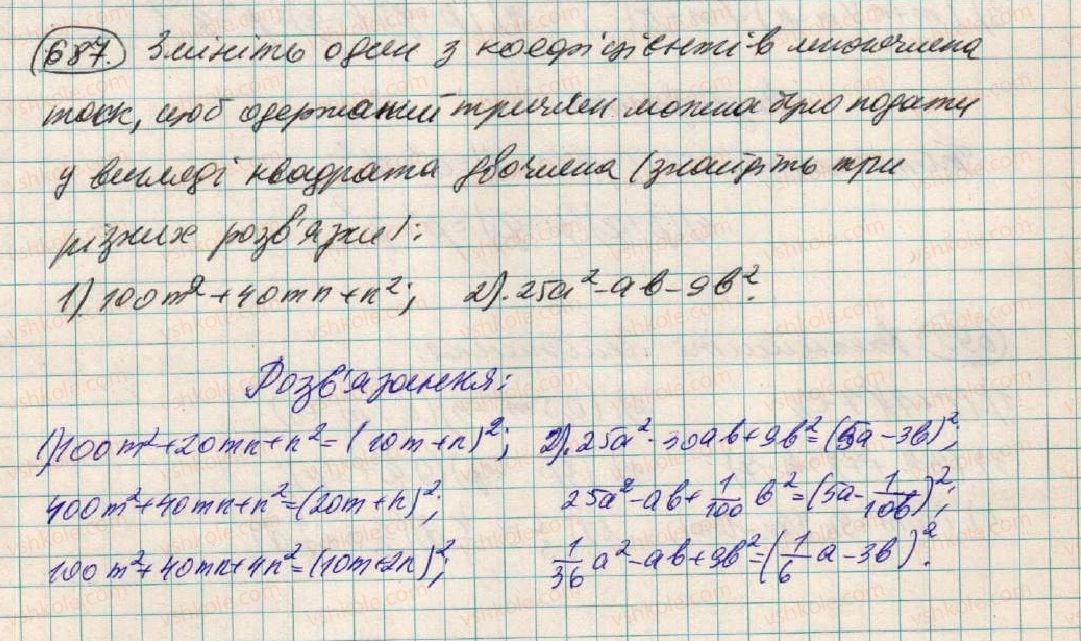 687. Змініть один з коефіцієнтів многочлена
так, щоб одержаний тричлен можна було подати
у вигляді квадрата двочлена (знайдіть три
різних розв'язки):
1). 100m² + 40mn + n²; 2). 25a² - ab - 9b².
Розв'язання:
1) 100m² + 20mn + n² = (10m + n)²; 2). 25a² - 30ab + 9b² = (5a - 3b)²;
400m² + 40mn + n² = (20m + n)²; 25a² - ab + 1/100 b² = (5a - 1/10b)²;
100m² + 40mn + 4n² = (10m + 2n)²; 1/36 a² - ab + 9b² = (1/6 a - 3b)².